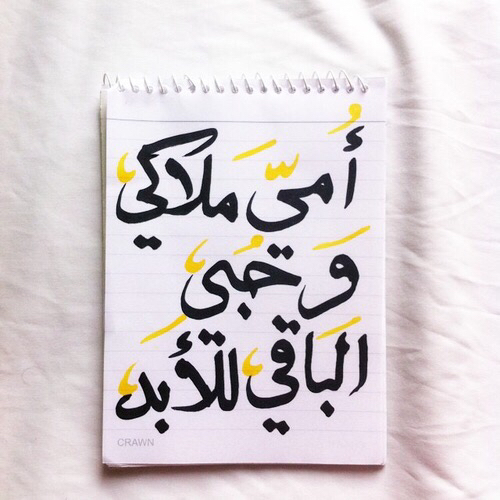 أُميّ مَلاكي
وَ حُبي
البَاقي للأبَد
CRAWN